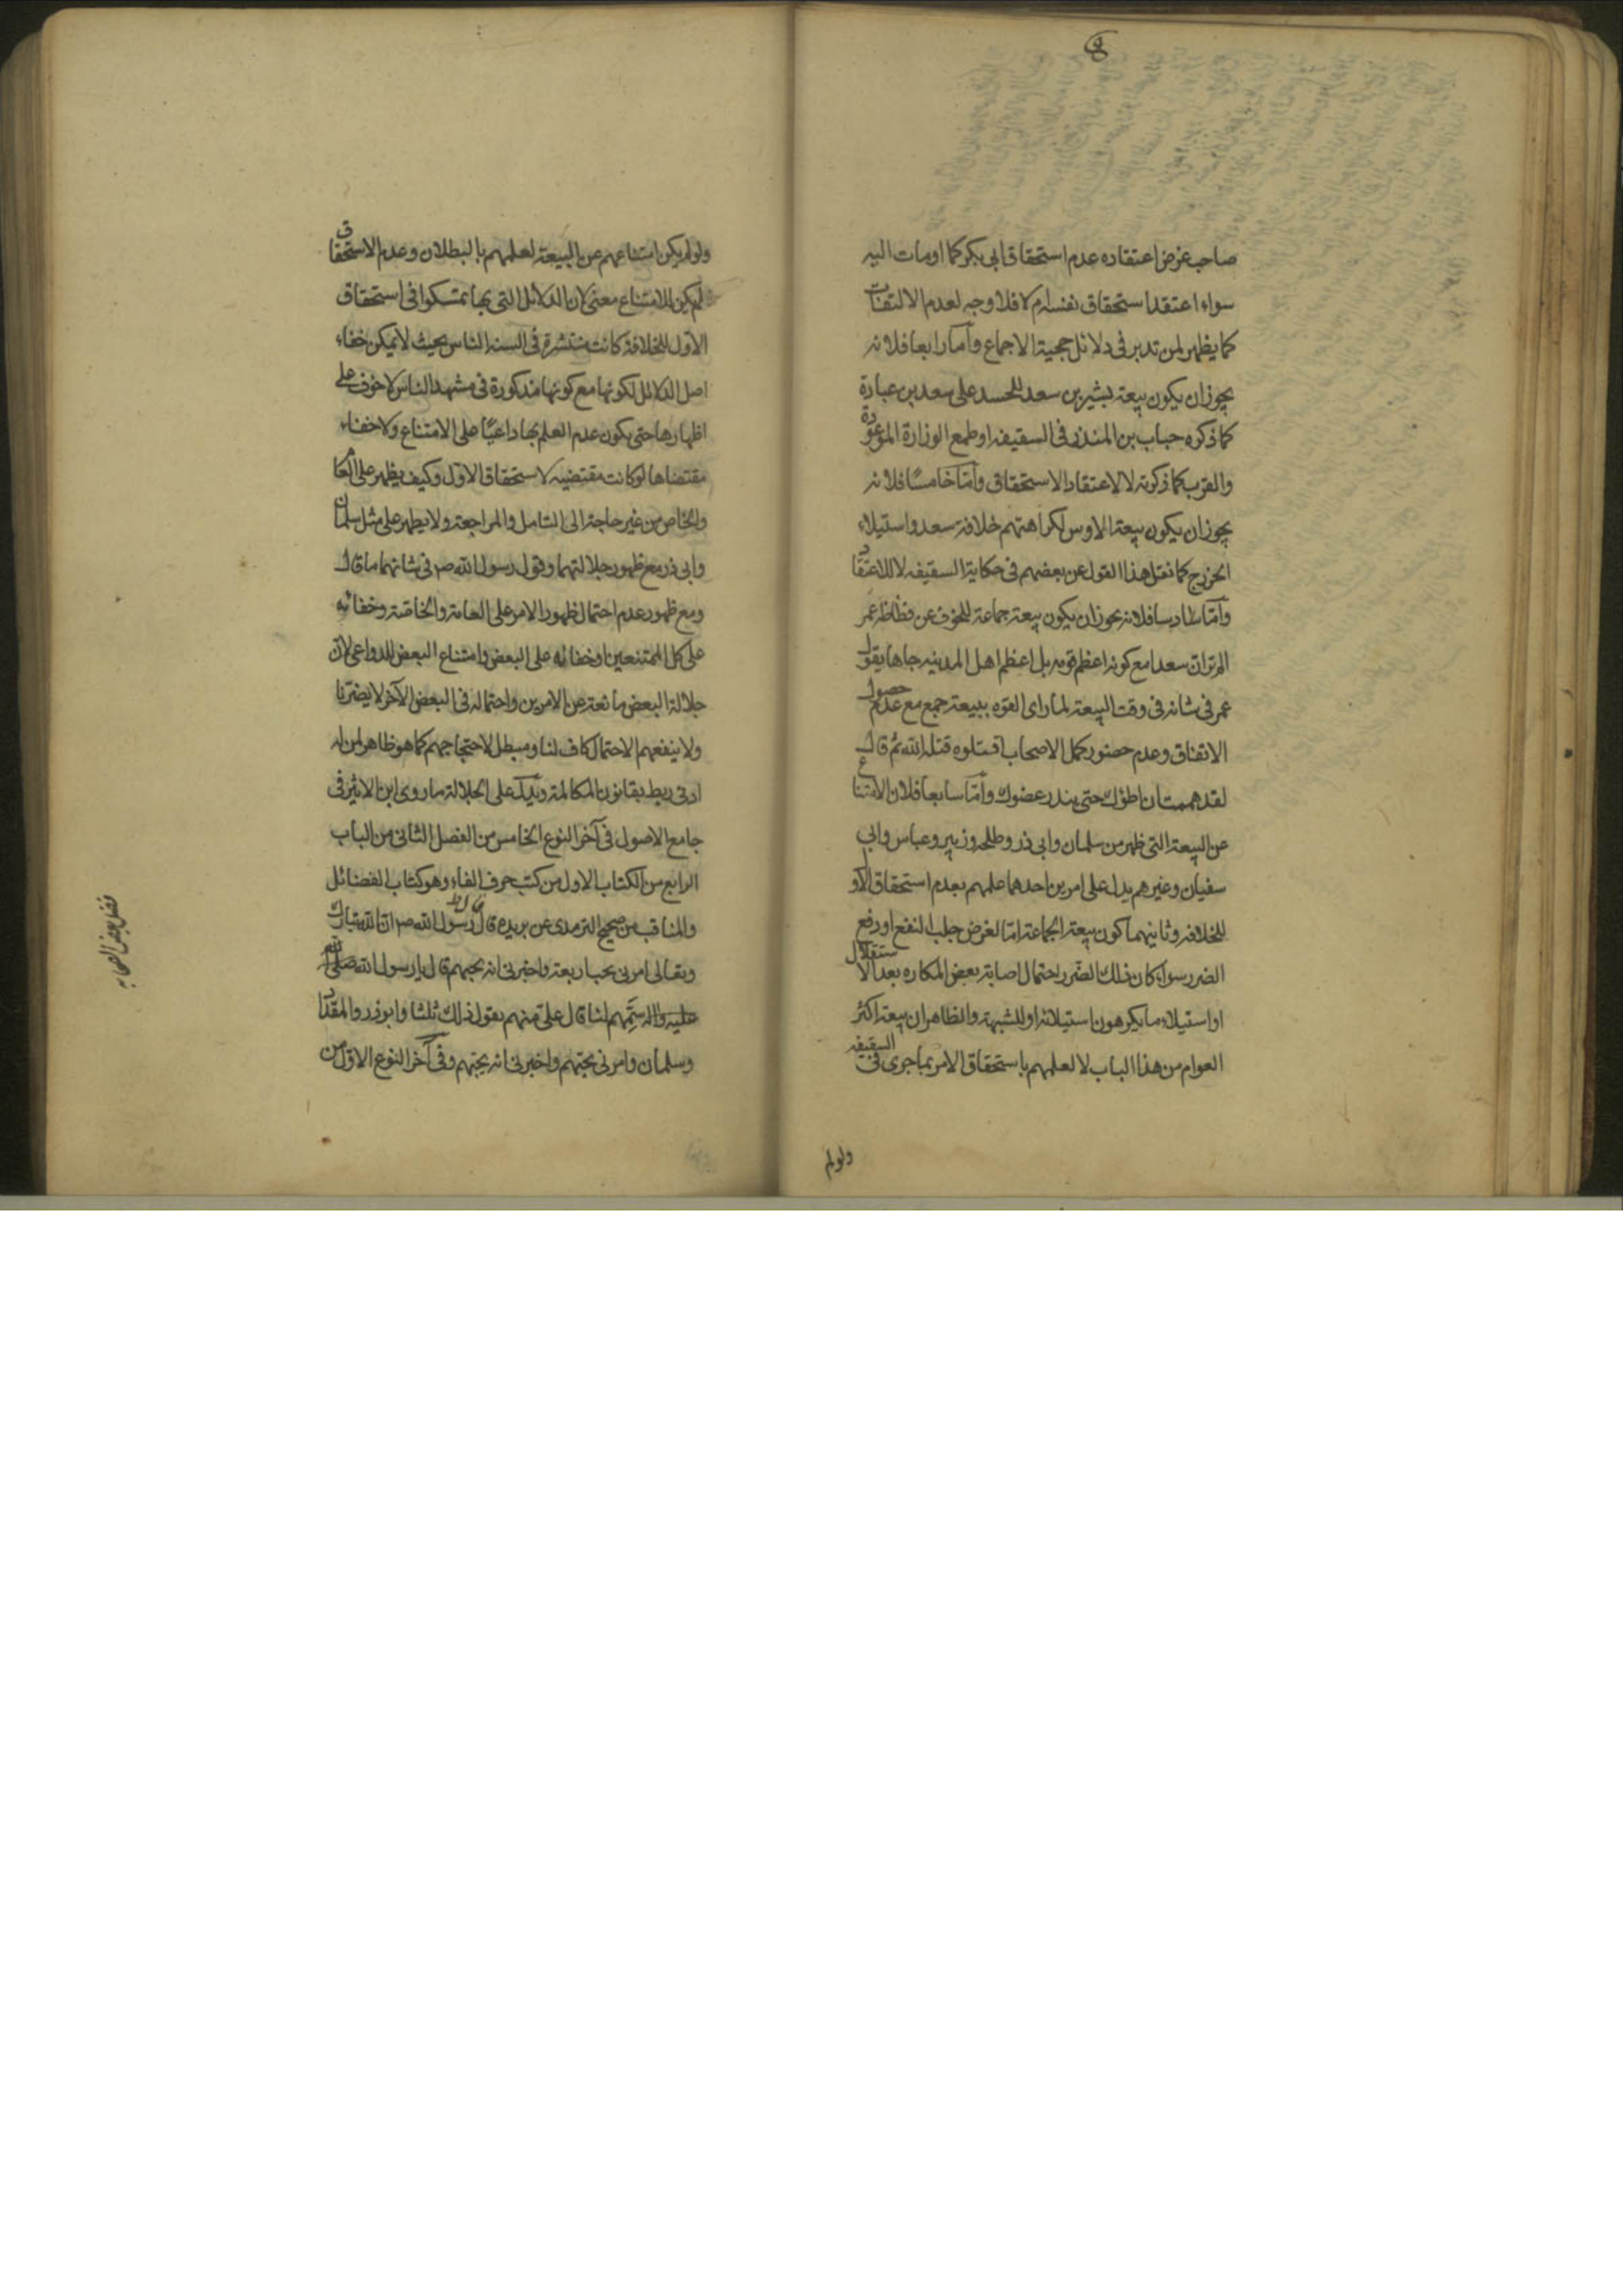 صاحب غرض اعتقاده عدم استحقاق ابی بکر کما اومات الیه
سواء اعتقد استحقاق نفسه ام لا فلا وجه لعدم الالتفات
کما یظهر لمن تدبر فی دلائل حجیة الاجماع وامّا رابعا فلانه
یجوز ان یکون بیعة بشیر بن سعد للحسد علی سعد بن عبادة
کما ذکره حباب بن المنذر فی السقیفه او طمع الوزارة الموعودة
والقرب کما ذکرته لا لاعتقاد الاستحقاق وامّا خامسًا فلانه
یجوز ان یکون بیعة الاوس لکراهتهم خلافة سعد واستیلاء
الخزرج کما نقل هذا القول عن بعضهم فی حکایة السقیفه لا للاعتقاد
وامّا سادسا فلانه یجوز ان یکون بیعة جماعة للخوف عن فظاظة عمر
الم تر انّ سعدا مع کونه اعظم قومه بل اعظم اهل المدینه جاها یقول
عمر فی شانه فی وقت البیعة لما رای القوه ببیعة جمع مع عدم حصول
الاتفاق وعدم حضور کمل الاصحاب اقتلوه قتله الله ثم قال
لقد هممت ان اطؤک حتی یندر عضوک وامّا سابعا فلان الامتناع
عن البیعة التی ظهر من سلمان وابی ذر وطلحه وزبیر وعباس وابی
سفیان وغیرهم یدل علی امرین احدهما علمهم بعدم استحقاق الاول
للخلافه وثانیهما کون بیعة الجماعة امّا لغرض جلب النفع او رفع
الضرر سواء کان ذلک الضرر احتمال اصابة بعض المکاره بعد الاستقلال
او استیلاء ما یکرهون استیلائه او للشبهة والظاهر ان بیعة اکثر
العوام من هذا الباب لا لعلمهم باستحقاق الامر بما جری فی السقیفه
ولو لم
ولو لم یکن امتناعهم عن البیعة لعلمهم بالبطلان وعدم الاستحقاق
لم یکن للامتناع معنی لان الدلائل التی بها تمسکوا فی استحقاق
الاول للخلافة کانت منتشرة فی السنه الناس بحیث لا یمکن خفاء
اصل الدلائل لکونها مع کونها مذکورة فی مشهد الناس لا خوف علی
اظهارها حتی یکون عدم العلم بها داعیًا علی الامتناع ولا خفاء
مقتضاها لو کانت مقتضیه لاستحقاق الاول وکیف یظهر علی العام
والخاص من غیر حاجة الی التامل والمراجعة ولا یظهر علی مثل سلمان
وابی ذر مع ظهور جلالتهما وقول رسول الله صم فی شانهما ما قال
ومع ظهور عدم احتمال ظهور الامر علی العامة والخاصّة وخفائه
علی کل الممتنعین او خفائه علی البعض وامتناع البعض للدواعی لانّ
جلالة البعض مانعة عن الامرین واحتماله فی البعض الآخر لا یضرّنا
ولا ینفعهم الاحتمال کاف لنا ومبطل لاحتجاجهم کما هو ظاهر لمن له
ادنی ربط بقانون المکالمة ویدلّ علی الجلالة ما روی ابن الاثیر فی
جامع الاصول فی آخر النوع الخامس من الفصل الثانی من الباب
الرابع من الکتاب الاول من کتب حرف الفاء وهو کتاب الفضائل
والمناقب من صحیح الترمدی عن بریده قال قال رسول الله صم ان الله تبارک
وتعالی امرنی بحب اربعة واخبرنی انه یحبهم قال یا رسول الله صلی الله
علیه واله سمّهم لنا قال علی منهم یقول ذلک ثلثا وابوذر والمقداد
وسلمان وامرنی بحبّهم واخبرنی انه یحبّهم وفی آخر النوع الاوّل من
فضل بعض الصحابه